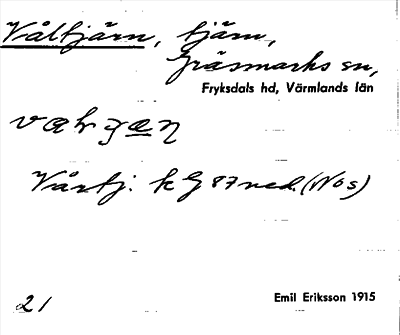 Våltjärn, tjärn,
Gräsmarks sn,
Fryksdals hd, Värmlands län
Vårtj. k G 87 ned. (Nos)
21
Emil Eriksson 1915